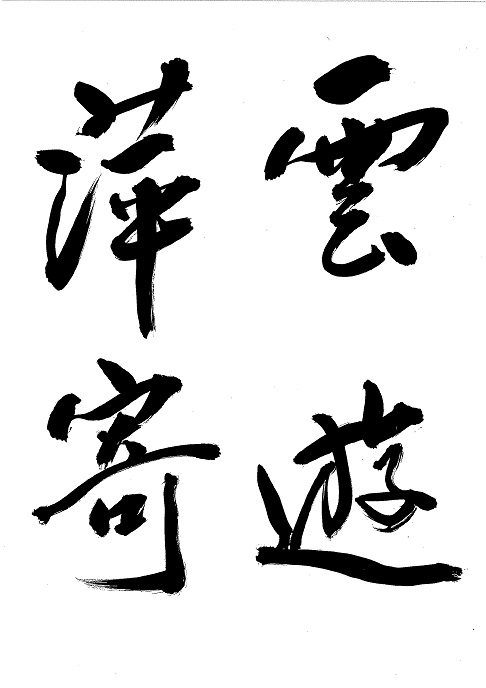 雲遊
萍寄